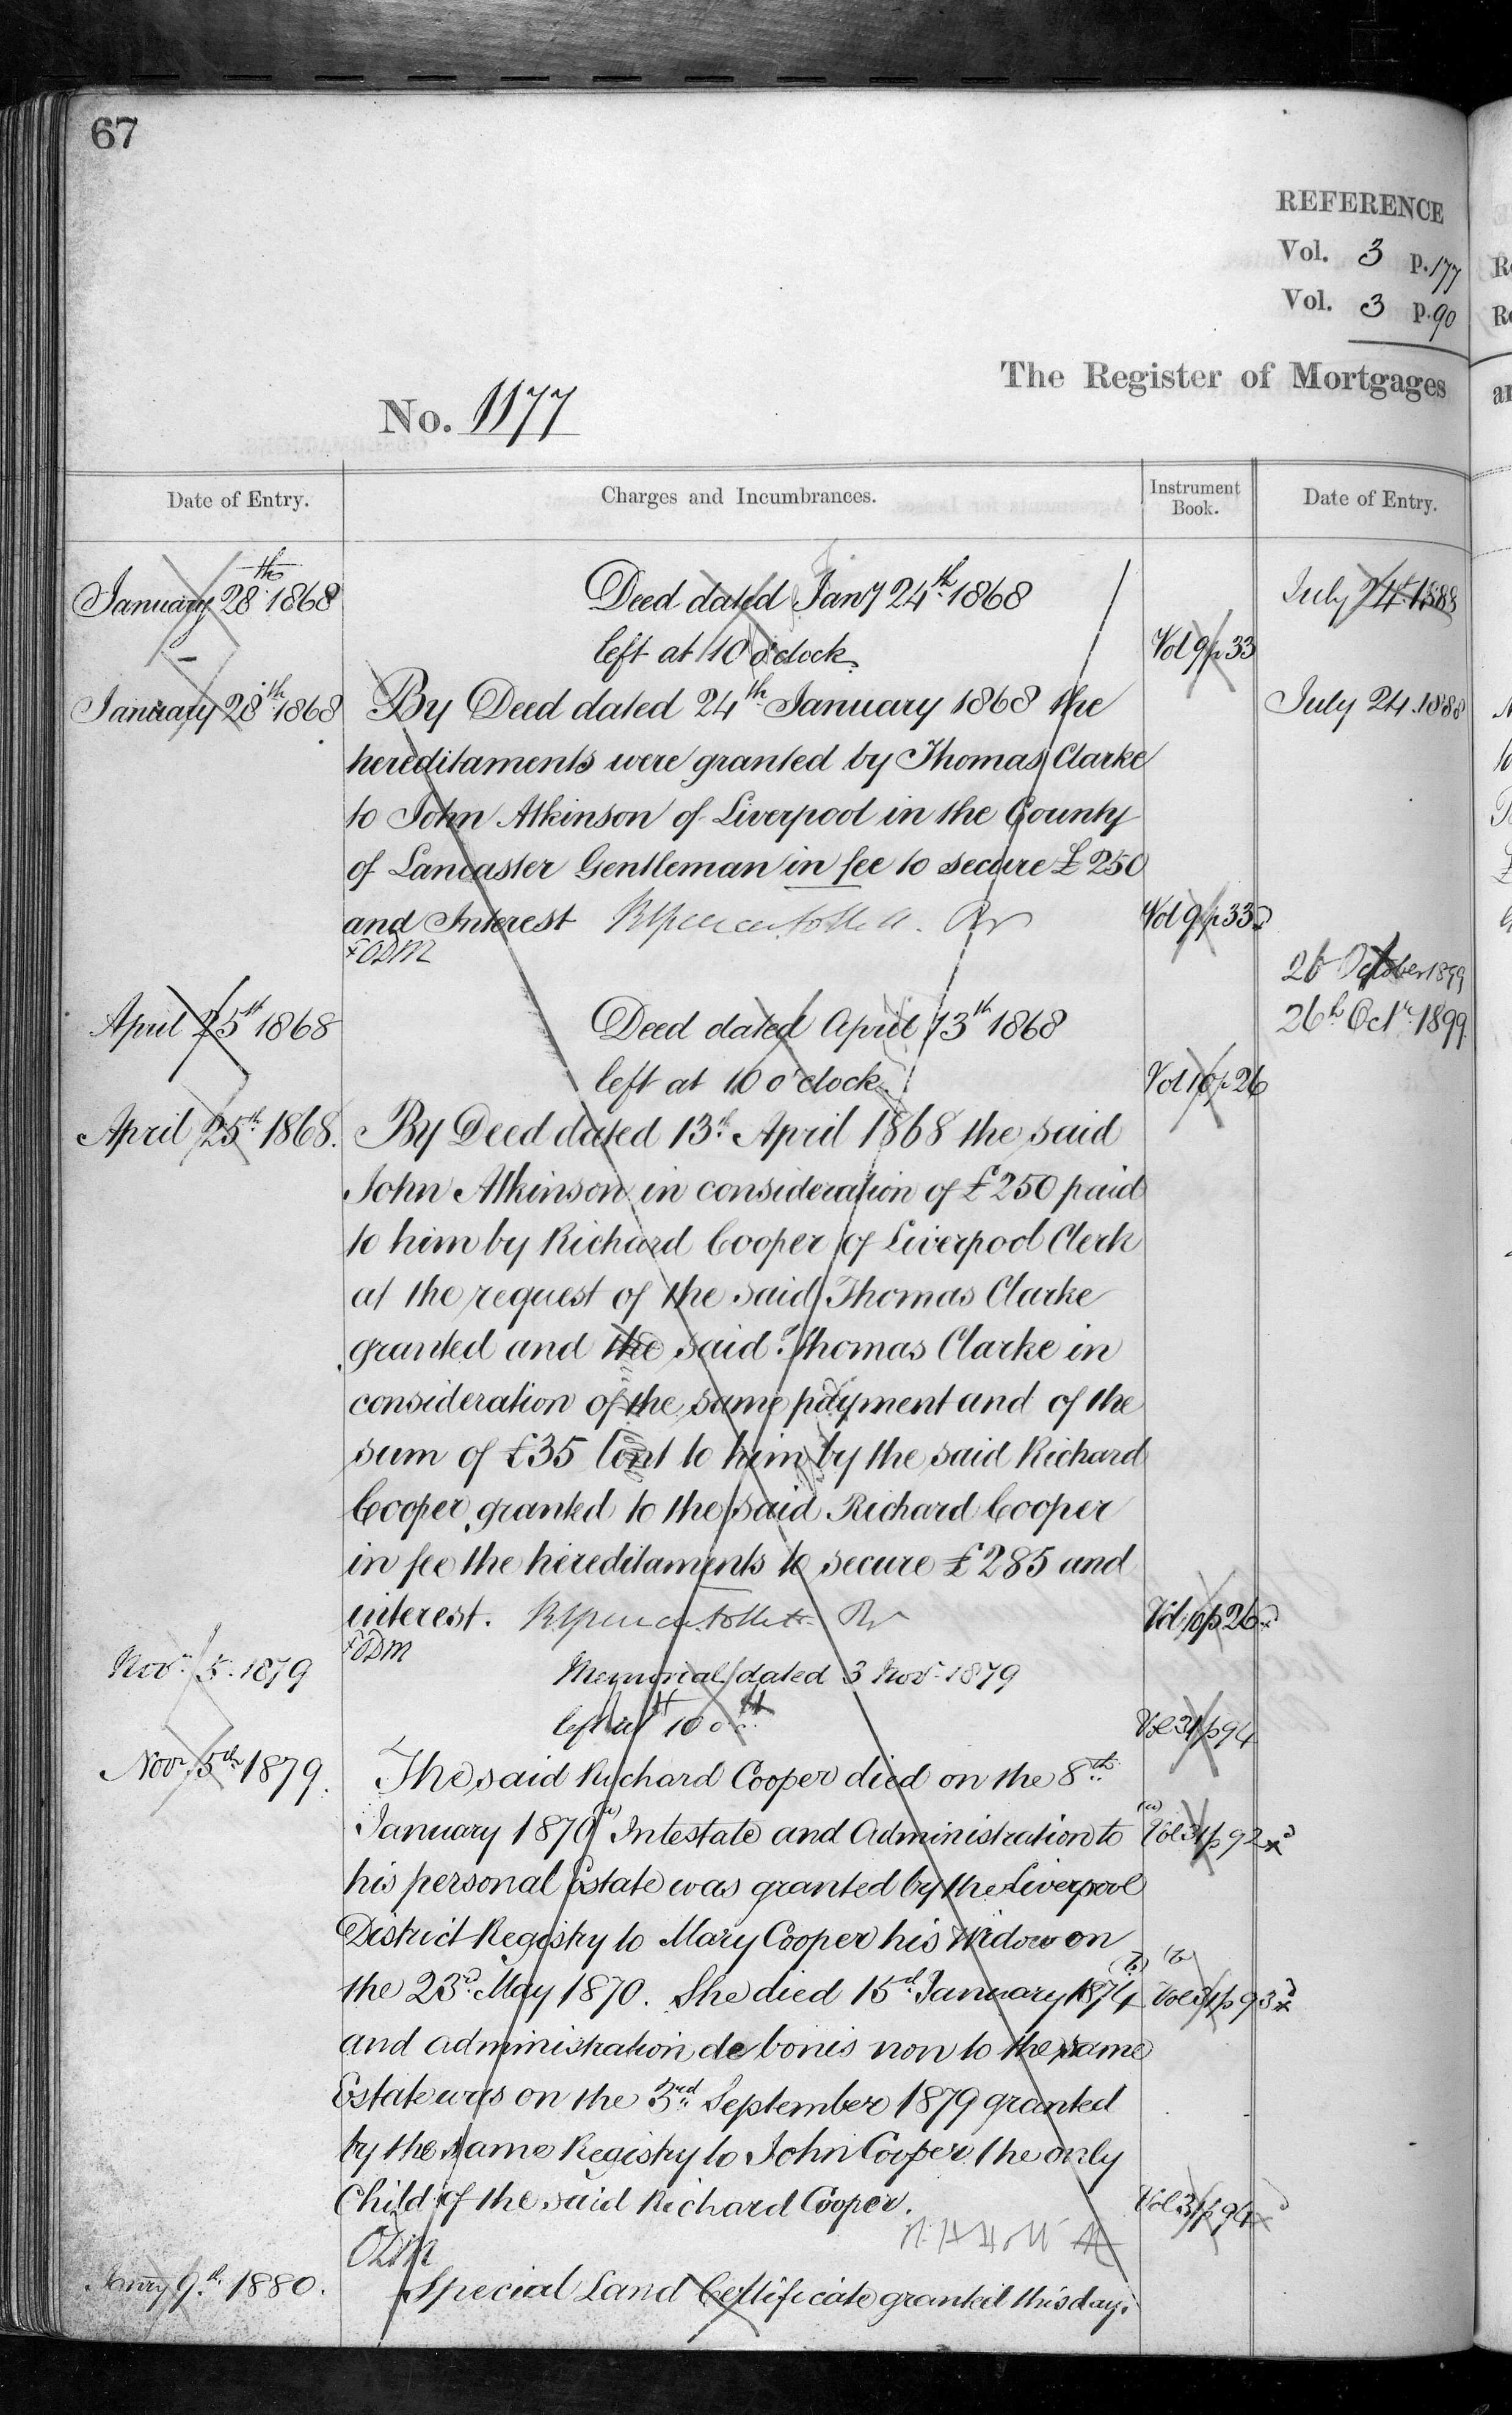 67
REFERENCE
Vol. 3 p. 177
Vol. 3 p. 90
The Register of Mortgages
No. 1177
Date of Entry.
Charges and Incumbrances.
Instrument Book.
Date of Entry.
January 28th 1868
Deed dated Jany 24th 1868
July 24th 1888
left at 10 o'clock
Vol 9 p 33
January 28th 1868
By Deed dated 24th January 1868 the
July 24 1888
hereditaments were granted by Thomas Clarke
to John Atkinson of Liverpool in the County
of Lancaster Gentleman in fee to secure £250
and Interest
Vol 9 p 33
ODM
26 October 1899
April 25th 1868
Deed dated April 13th 1868
26th Octr 1899
left at 10 o'clock
Vol 10 p 26
April 25th 1868.
By Deed dated 13th April 1868 the said
John Atkinson in consideration of £250 paid
to him by Richard Cooper of Liverpool Clerk
at the request of the said Thomas Clarke
granted and the said Thomas Clarke in
consideration of the same payment and of the
sum of £35 lent to him by the said Richard
Cooper granted to the said Richard Cooper
in fee the hereditaments to secure £285 and
interest.
Vol 10 p 26
ODM
Novr 5. 1879
Memorial dated 3 Novr 1879
left at 10 o.c.
Vol 31 p 94
Novr 5th 1879.
The said Richard Cooper died on the 8th
January 1870 (a) Intestate and Administration to
(a) Vol 31 p 92
his personal Estate was granted by the Liverpool
District Registry to Mary Cooper his Widow on
the 23d May 1870. She died 15th January 1874 (b)
(b) Vol 31 p 93
and administration de bonis non to the same
Estate was on the 3rd September 1879 granted
by the same Registry to John Cooper the only
Child of the said Richard Cooper.
Vol 31 p 94
ODM
Jany 9th 1880.
Special Land Certificate granted this day.